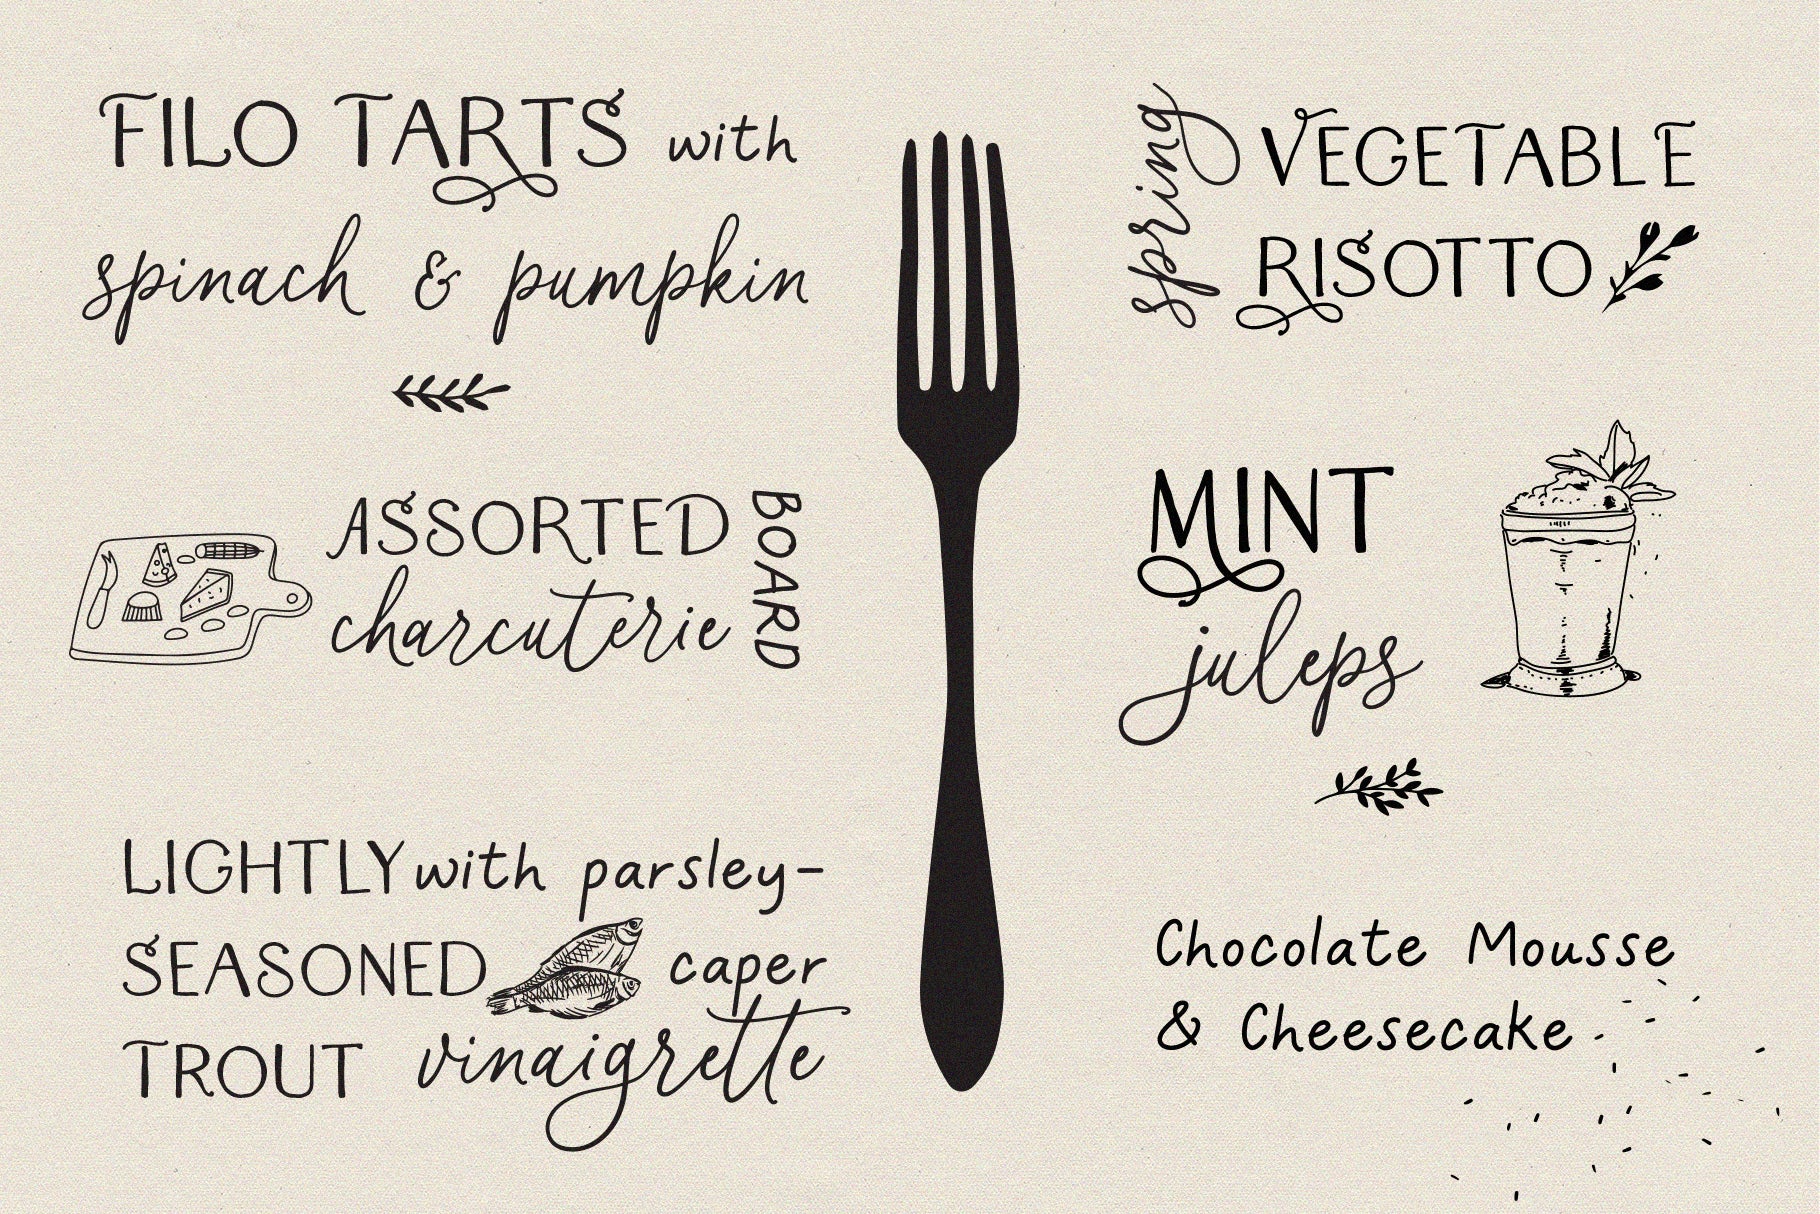 FILO TARTS with
spinach & pumpkin
ASSORTED
charcuterie
BOARD
LIGHTLY
SEASONED
TROUT
with parsley-
caper
vinaigrette
spring
VEGETABLE
RISOTTO
MINT
juleps
Chocolate Mousse
& Cheesecake